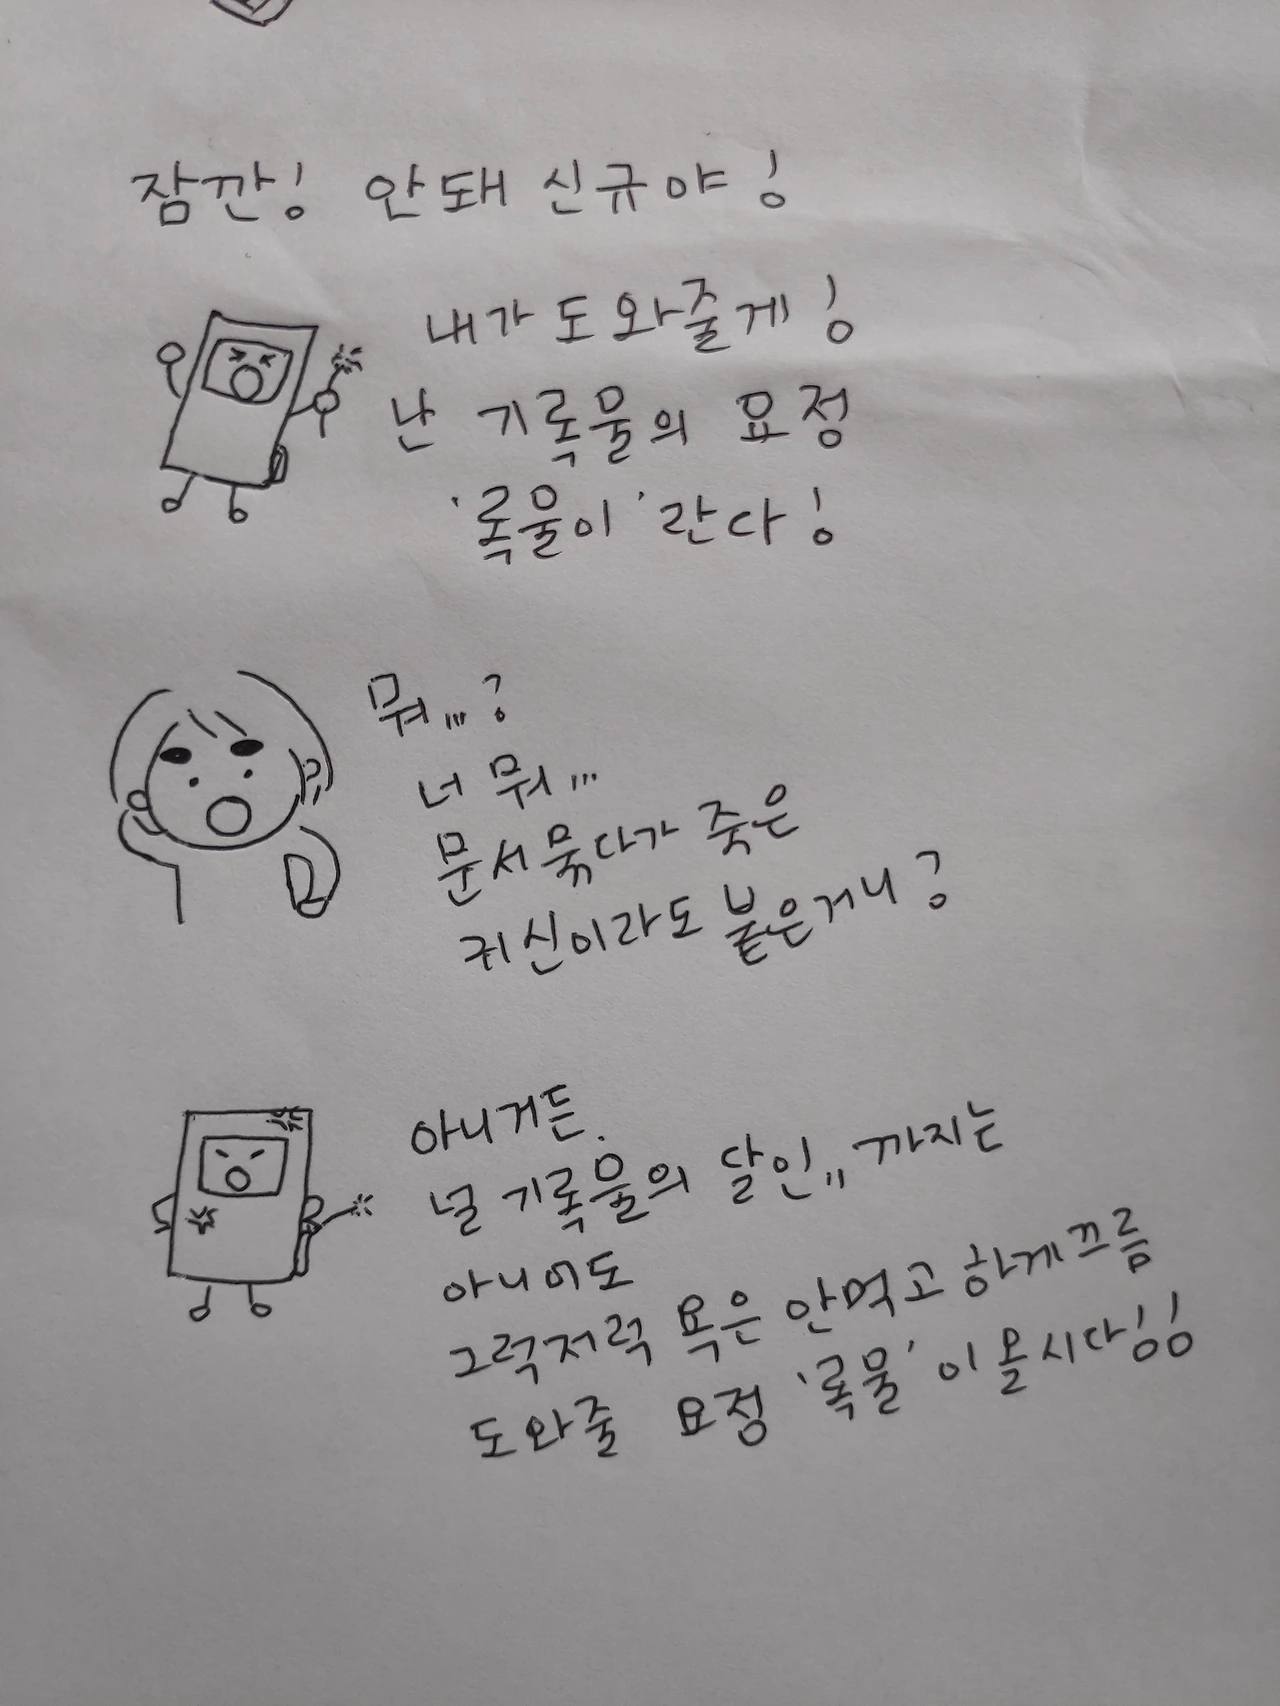 잠깐! 안돼 신규야!
내가 도와줄게!
난 기록물의 요정
'록물이'란다!
뭐...?
너 뭐...
문서묶다가 죽은
귀신이라도 붙은거니?
아니거든.
널 기록물의 달인,, 까지는
아니어도
그럭저럭 욕은 안먹고 하게끄름
도와줄 요정 '록물'이올시다!!